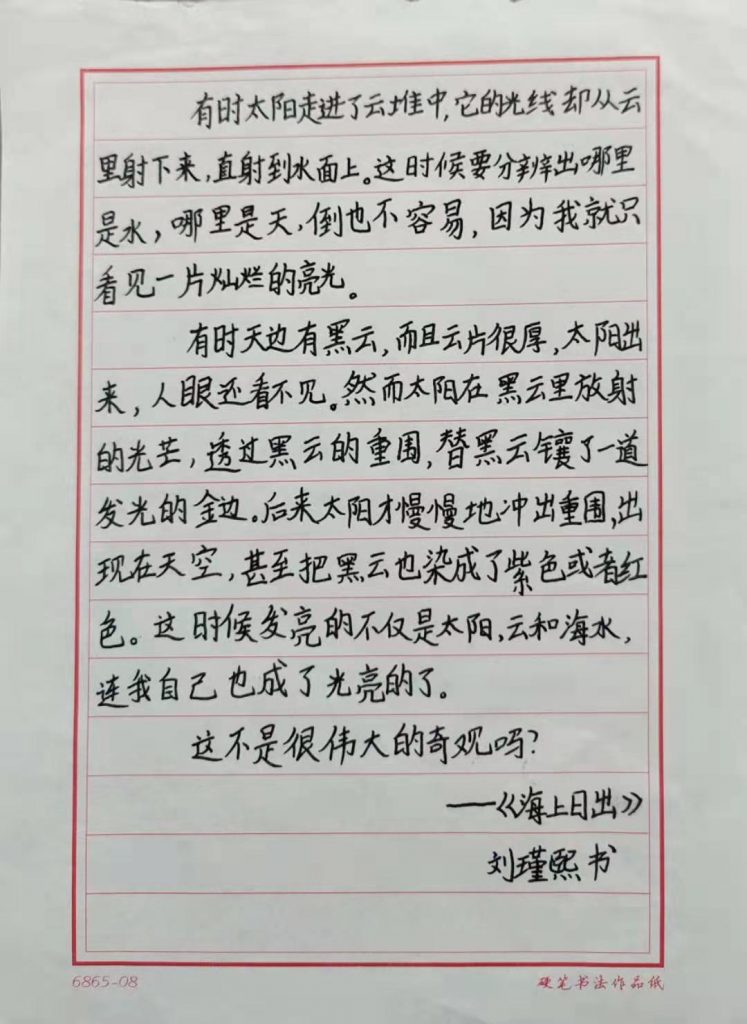 有时太阳走进了云堆中,它的光线却从云
里射下来,直射到水面上。这时候要分辨出哪里
是水,哪里是天,倒也不容易,因为我就只
看见一片灿烂的亮光。
有时天边有黑云,而且云片很厚,太阳出
来,人眼还看不见。然而太阳在黑云里放射
的光芒,透过黑云的重围,替黑云镶了一道
发光的金边。后来太阳才慢慢地冲出重围,出
现在天空,甚至把黑云也染成了紫色或者红
色。这时候发亮的不仅是太阳,云和海水,
连我自己也成了光亮的了。
这不是很伟大的奇观吗?
——《海上日出》
刘瑾熙书
6865-08 硬笔书法作品纸